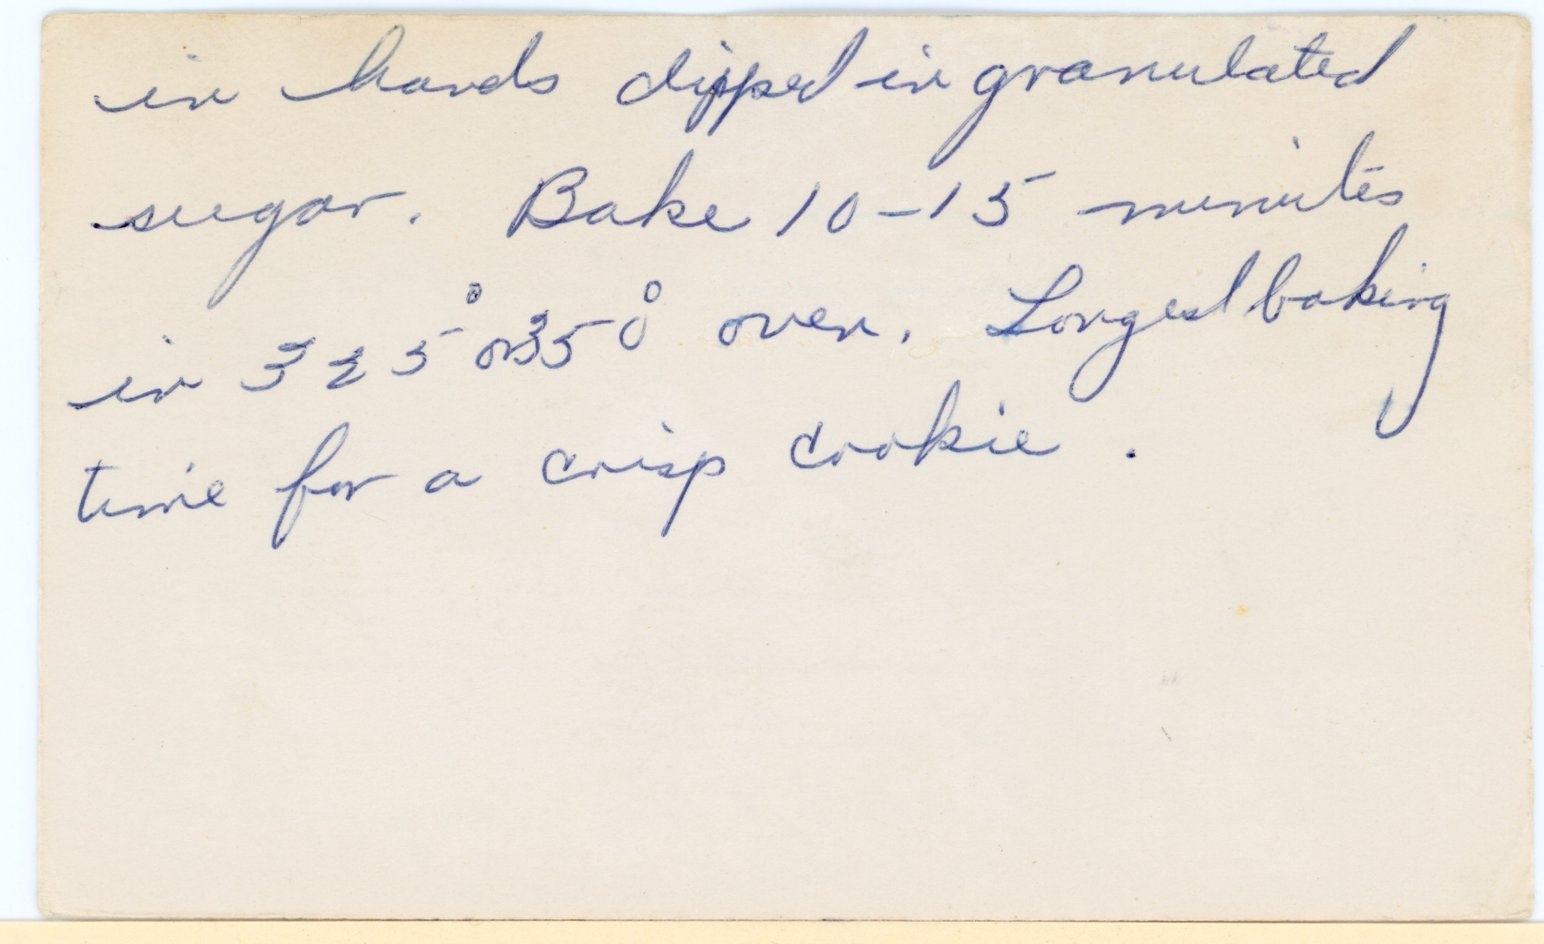 in hands dipped in granulated
sugar. Bake 10-15 minutes
in 325° or 350° oven. Longest baking
time for a crisp cookie.